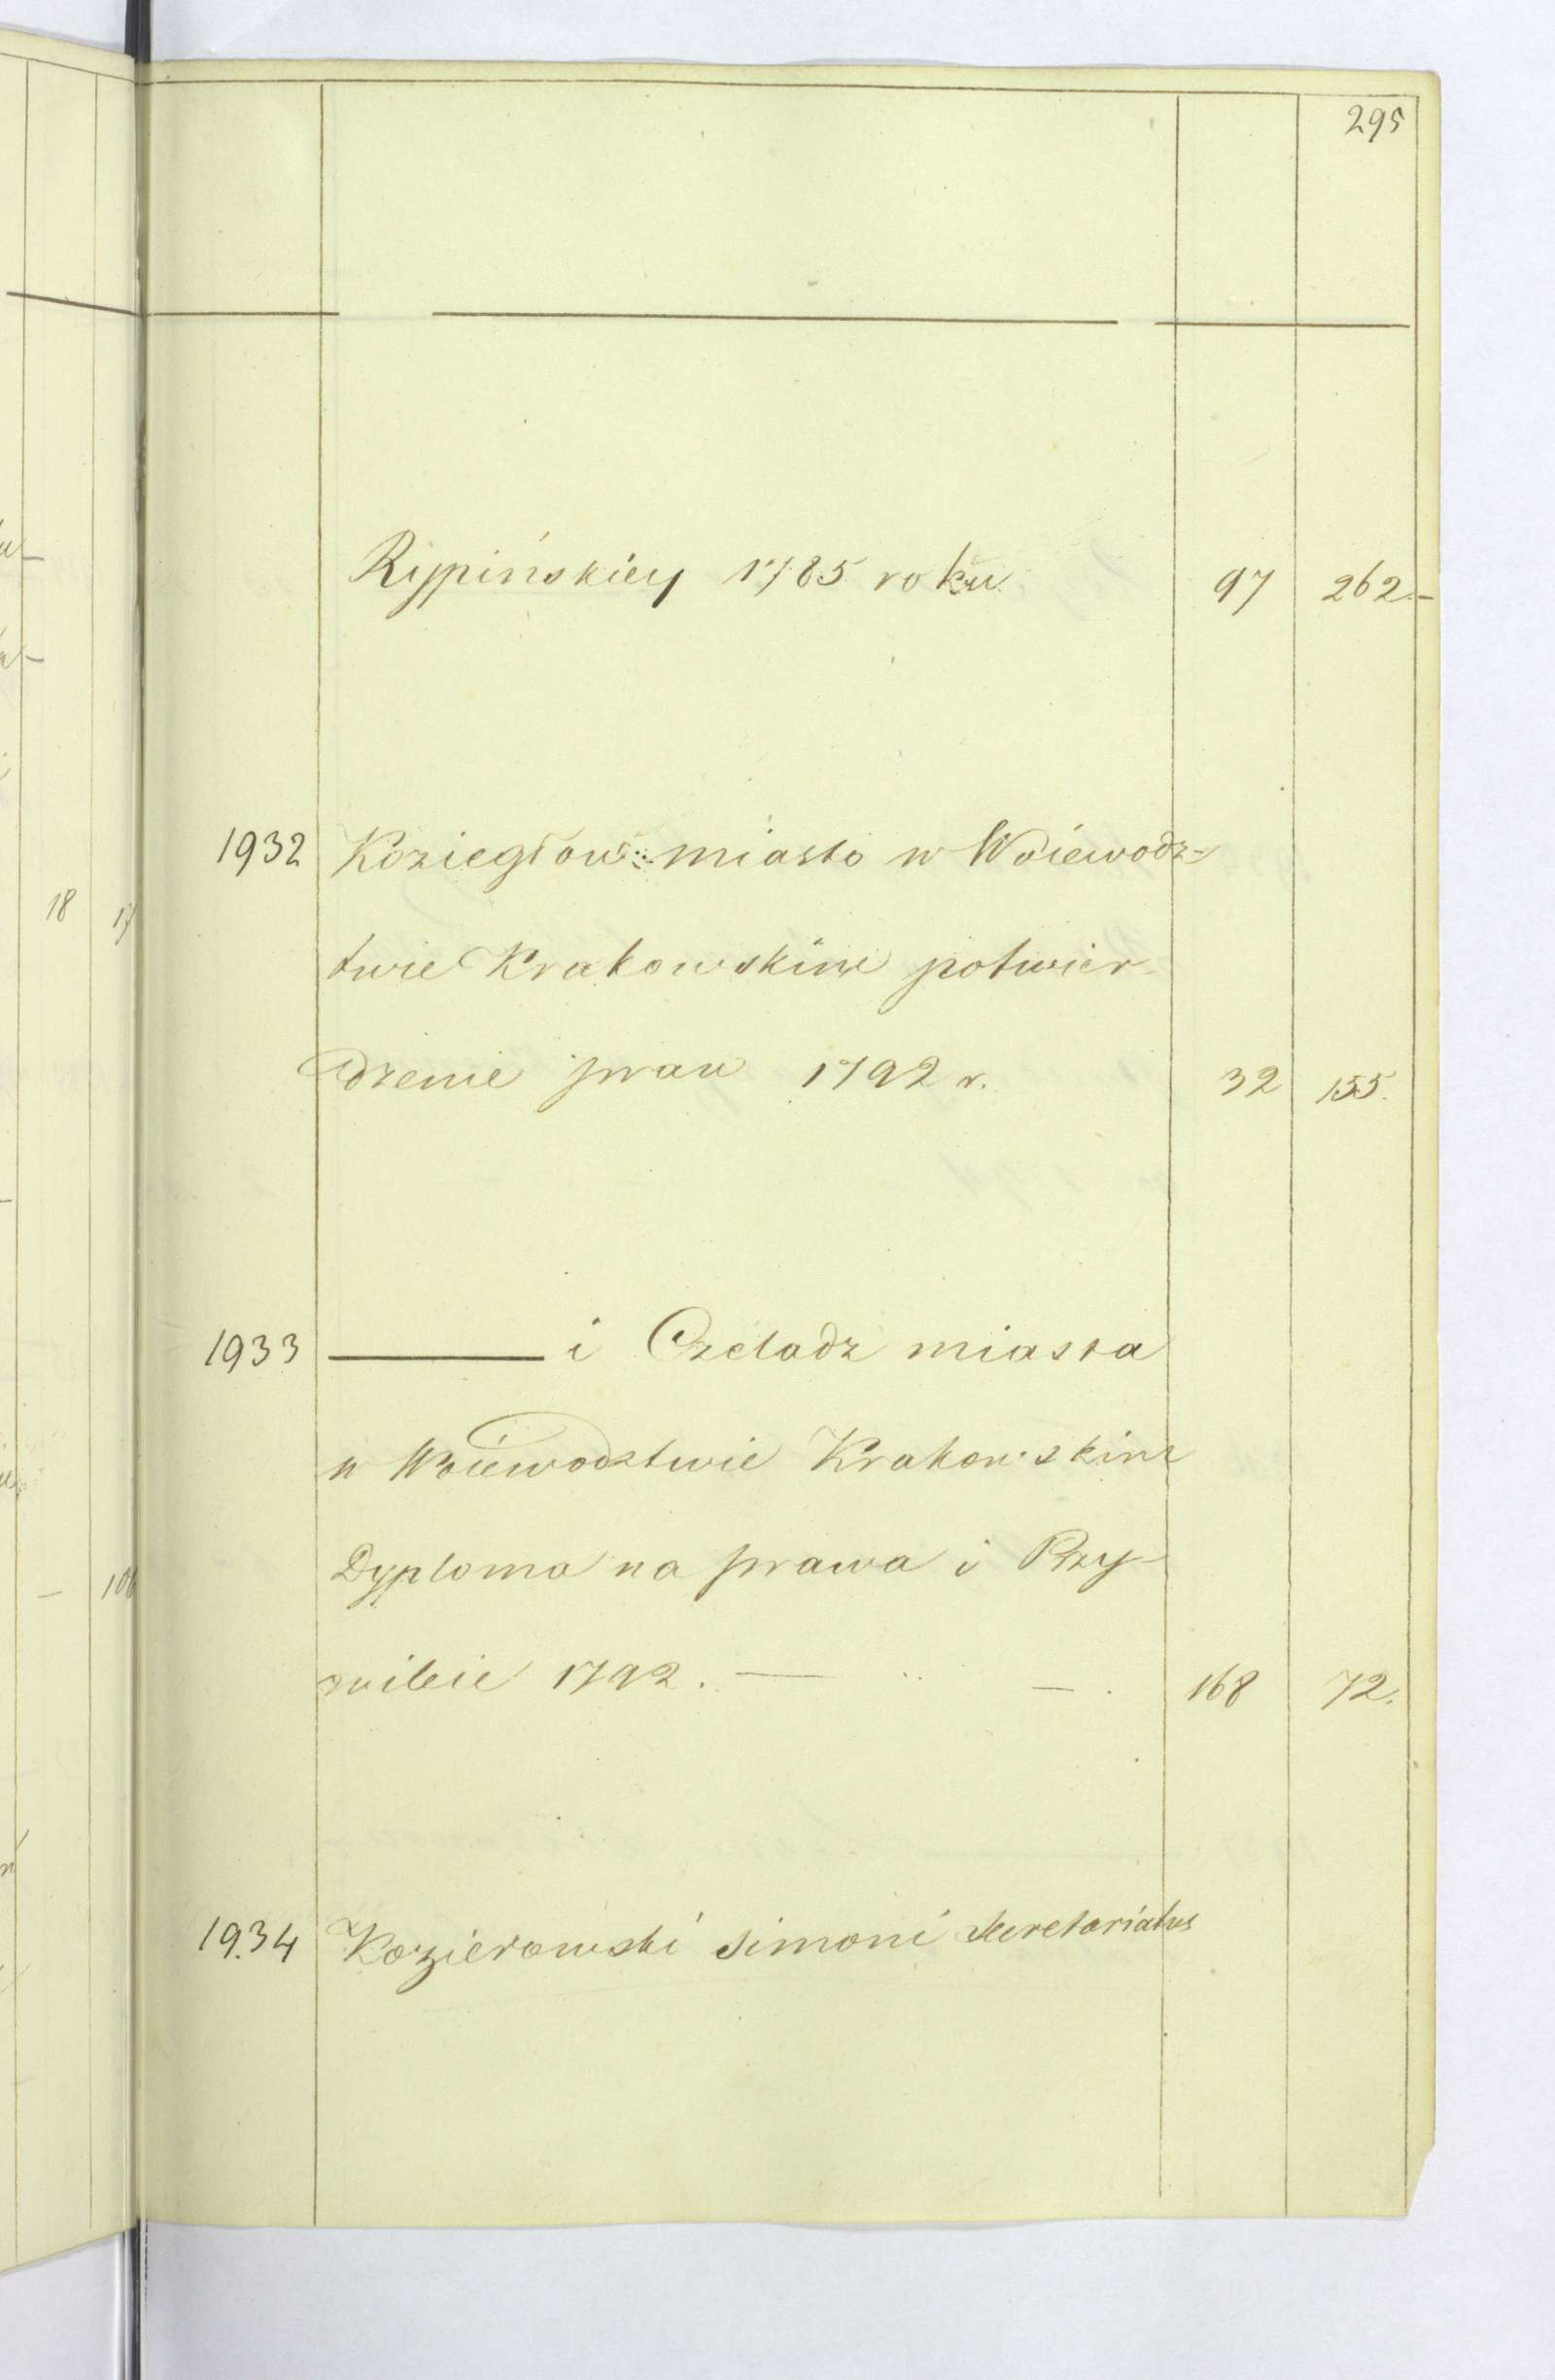 295
Rypińskiey 1785 roku 97 262.-
1932 Koziegłow miasto w Woiewodz-
twie Krakowskim potwier-
dzenie praw 1792 r. 32 155.
1933 ——— i Czeladz miasta
w Woiewodztwie Krakowskim
Dyploma na prawa i Przy-
wileie 1792. — — . 168 72.
1934 Kozierowski Simoni Secretariatus
18 17
- 106